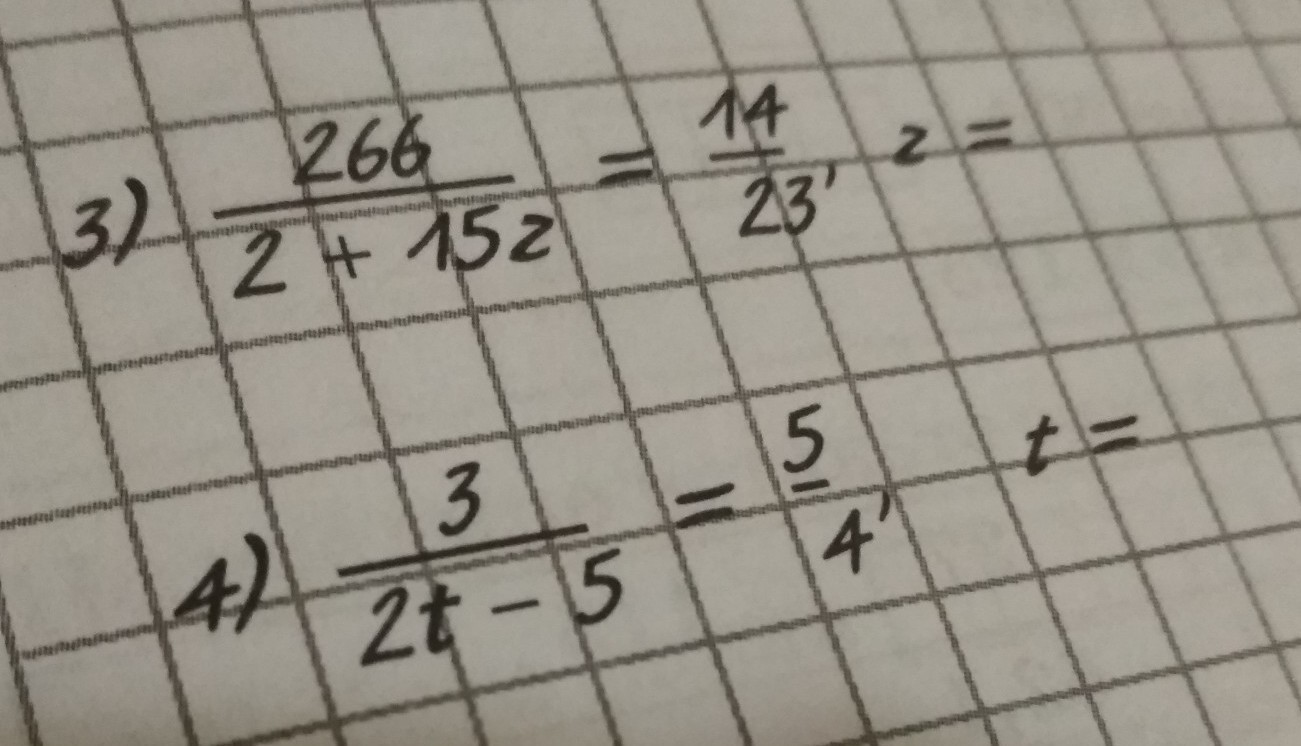 3) 266/(2 + 15z) = 14/23, z =
4) 3/(2t - 5) = 5/4, t =